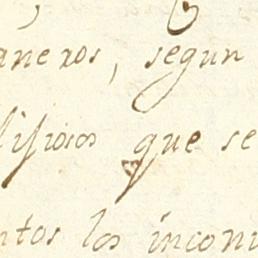 aneros, segun
lisicos que se
ntos los incon